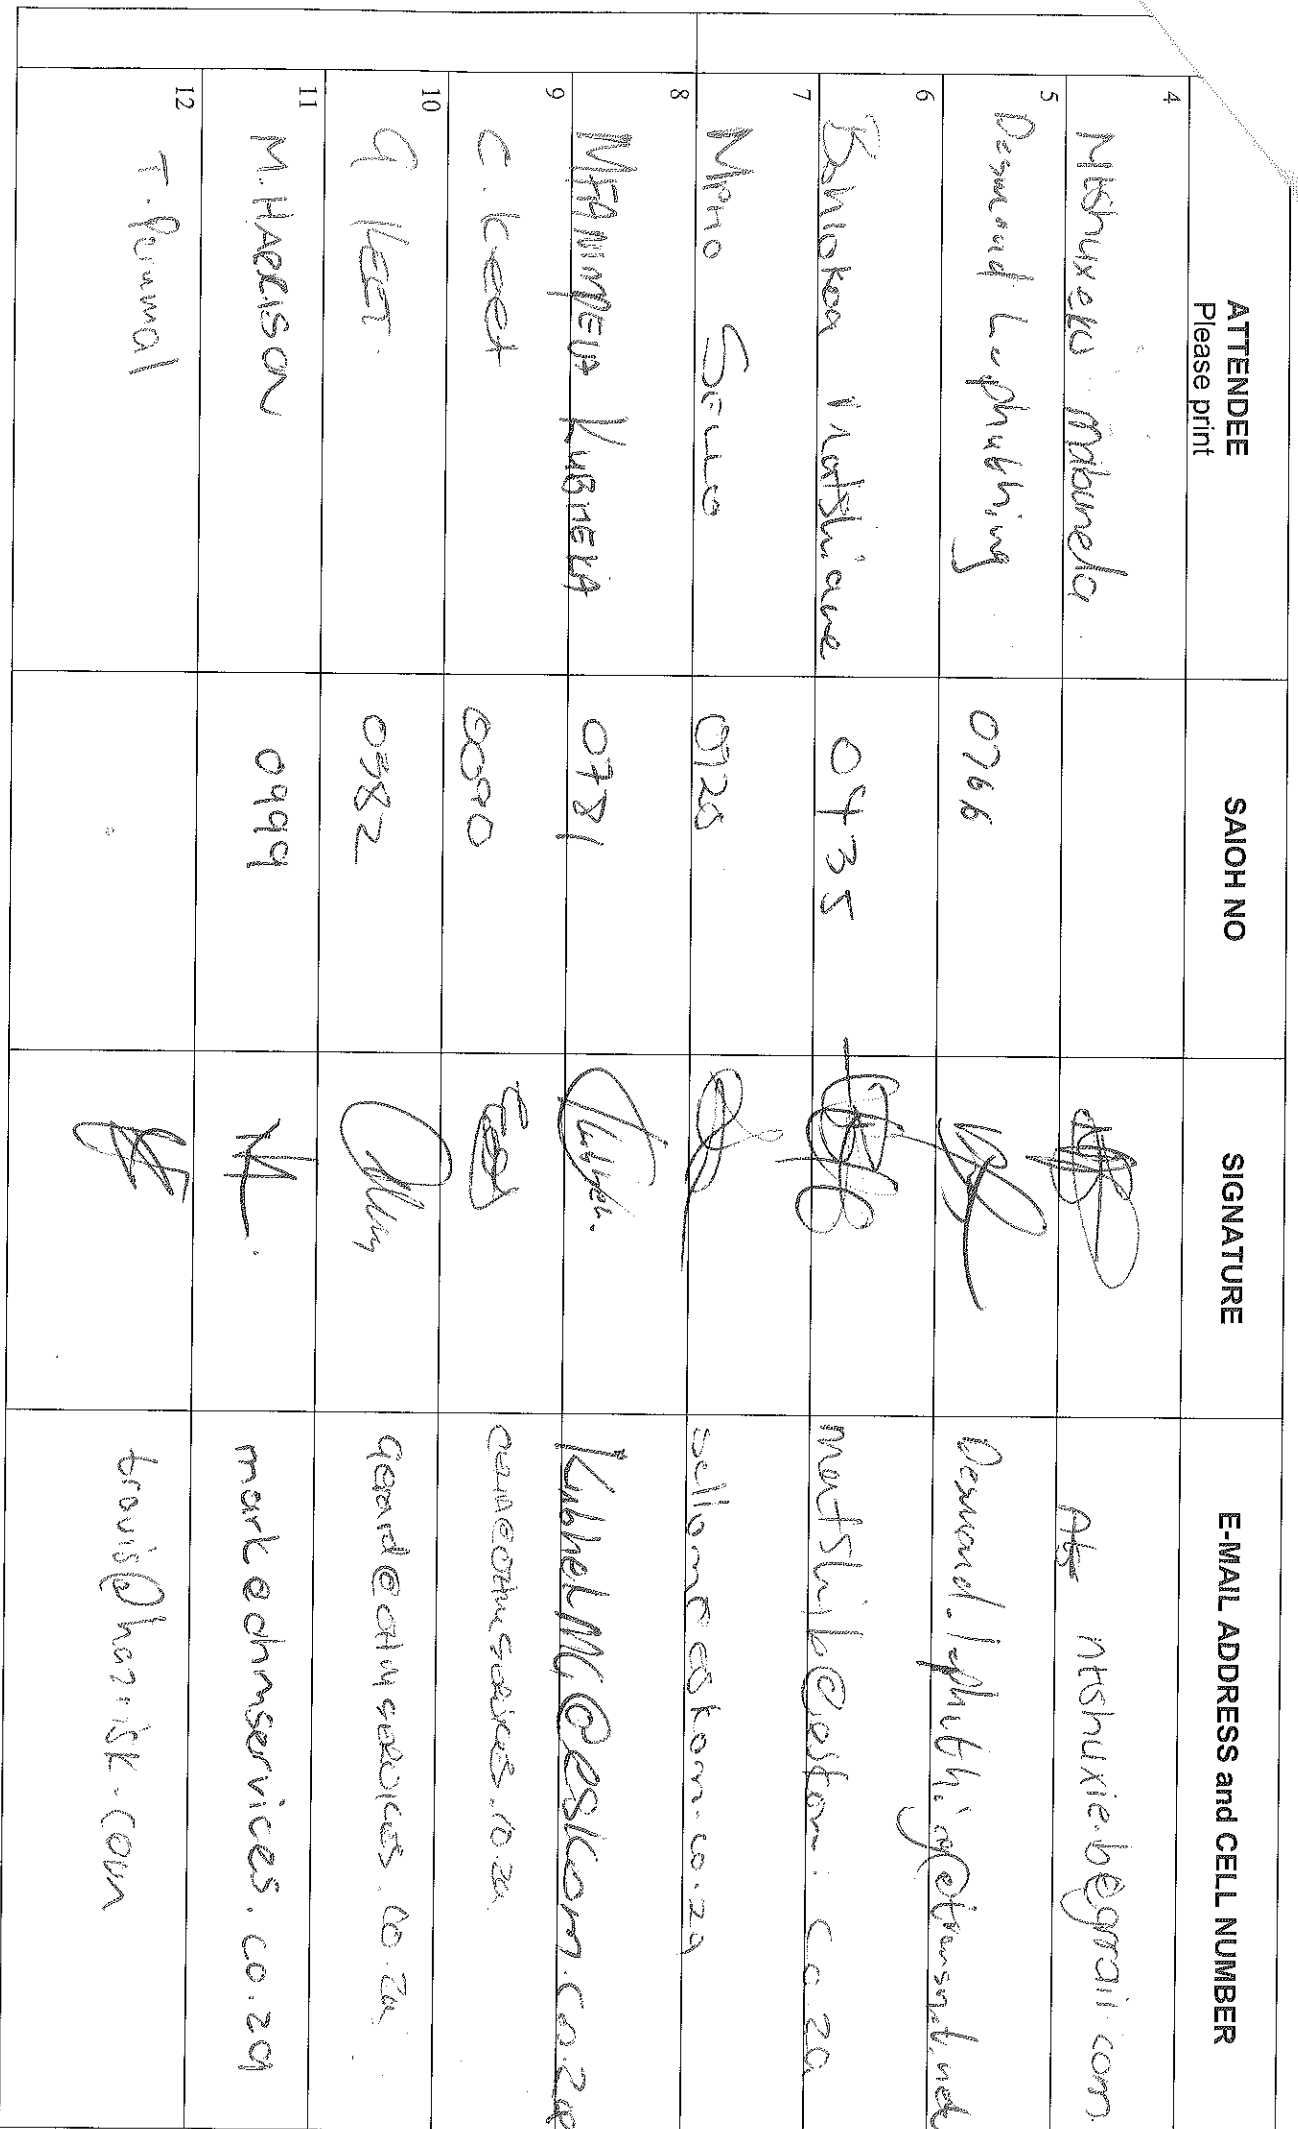 ATTENDEE SAIOH NO SIGNATURE E-MAIL ADDRESS and CELL NUMBER
Please print
4 Ntshuxeko Mabunela ntshuxie.b@gmail.com
5 Desmond Lephuthing 0766 Desmond.lephuthing@transnet.net
6 Bahlokoa Motshiane 0435 motshilb@eskom.co.za
7 MPHO SELLO 0720 sellomE@eskom.co.za
8 MFANIMPELA KUBHEKA 0781 KubhekMG@eskom.co.za
9 C. Keet 0090
10 G KEET. 0582 gerard@ohmservices.co.za
11 M. HARRISON 0999 mark@ohmservices.co.za
12 T. Perumal travis@hazrisk.com